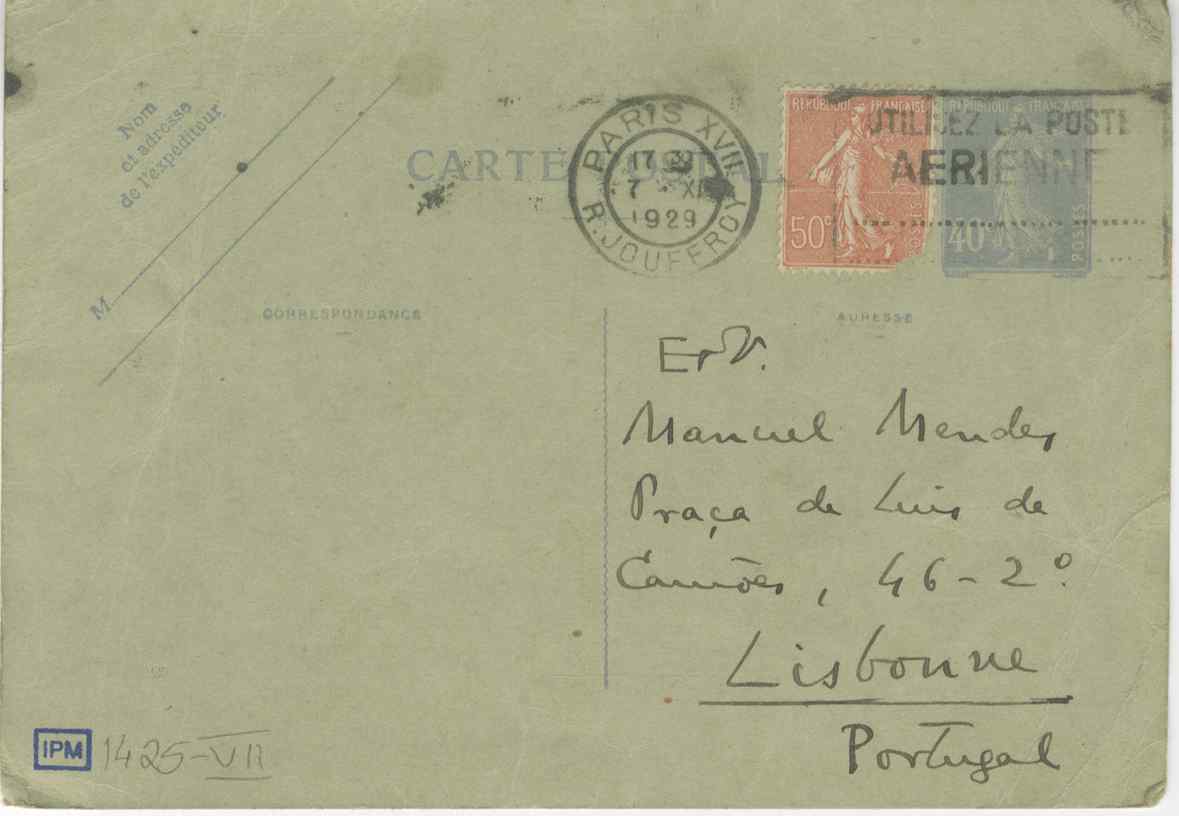 Nom
et adresse
de l'expéditeur
M
CARTE POSTALE
PARIS XVII
17
7 XI
1929
R. JOUFFROY
REPUBLIQUE FRANÇAISE
50c
POSTES
REPUBLIQUE FRANÇAISE
40c
POSTES
UTILISEZ LA POSTE
AERIENNE
CORRESPONDANCE
ADRESSE
Manuel Mendes
Praça de Luis de
Camões, 46-2º.
Lisbonne
Portugal
IPM 1425-VII